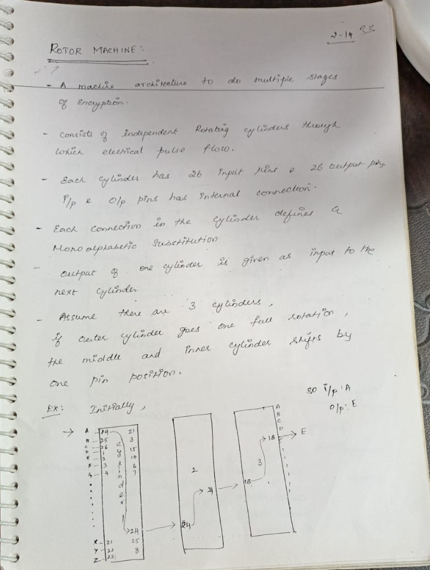 2-14
ROTOR MACHINE:
- A machine architecture to do multiple stages
of Encryption.
- Consists of Independent Rotating cylinders through
which electrical pulse flow.
- Each cylinder has 26 input pins & 26 output pins
I/p & O/p pins has internal connection.
- Each connection in the cylinder defines a
Monoalphabetic Substitution
- output of one cylinder is given as input to the
next cylinder
- Assume there are 3 cylinders,
if outer cylinder goes one full rotation,
the middle and inner cylinder shifts by
one pin position.
Ex: Initially,
so I/p: A
O/p: E
A 24 21
25 3
26 15
1
2
3
4
24
X 21 25
Y 22 8
Z 23
2
24
24
3
18
18
A
B
C
D
E